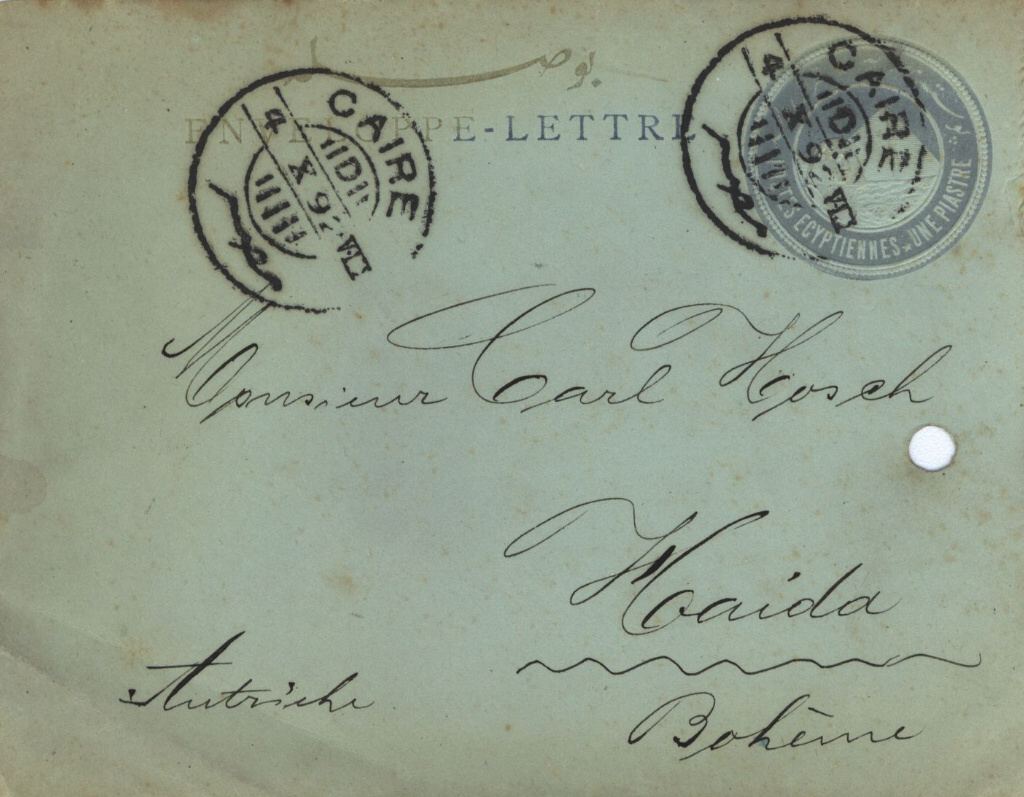 ENVELOPPE-LETTRE
CAIRE
4 X 92
CAIRE
4 X 92
POSTES EGYPTIENNES
UNE PIASTRE
Monsieur Carl Hosch
Haida
Autriche
Bohême